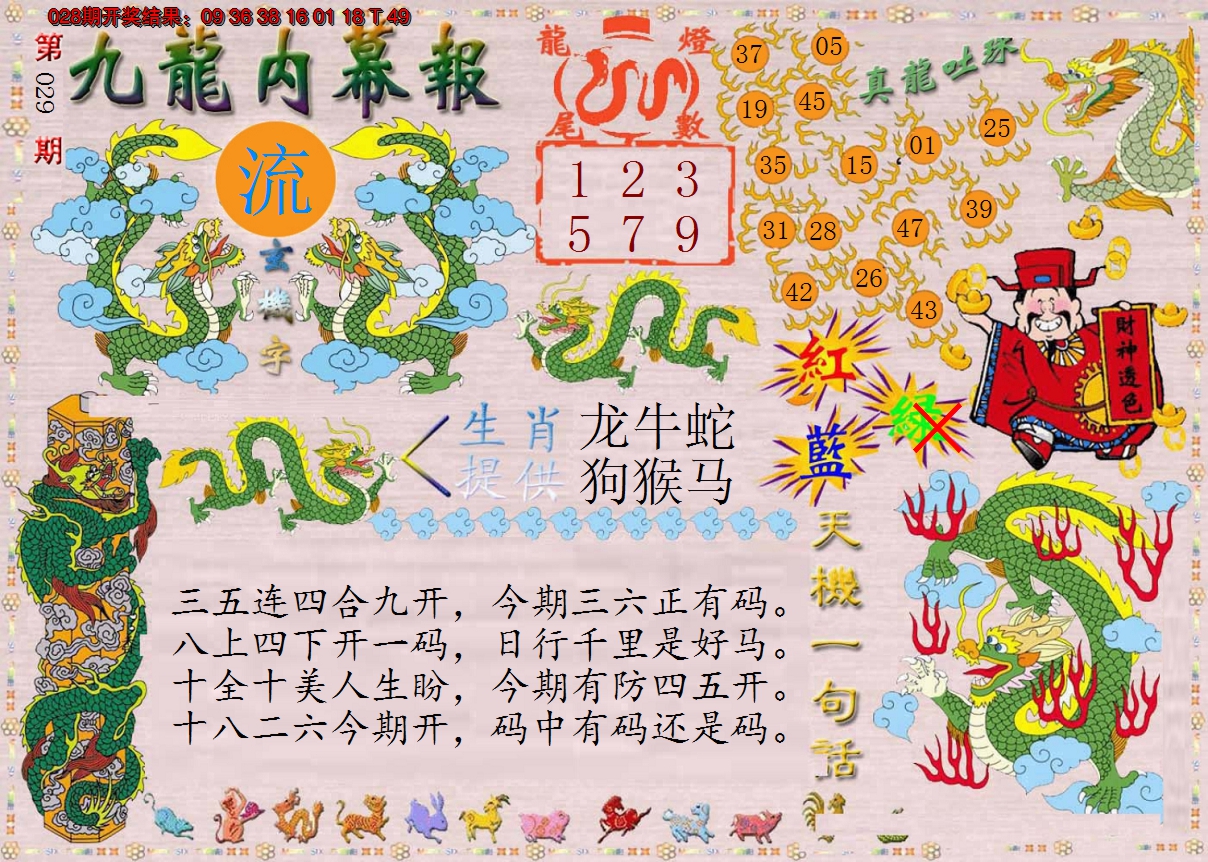 028期开奖结果：09 36 38 16 01 18 T 49
第029期
九龍内幕報
流
玄機字
龍燈尾數
1 2 3
5 7 9
真龍吐珠
37 05
19 45
35 15 01 25
31 28 47 39
42 26 43
財神透色
紅
綠
藍
生肖提供
龙牛蛇
狗猴马
天機一句話
三五连四合九开，今期三六正有码。
八上四下开一码，日行千里是好马。
十全十美人生盼，今期有防四五开。
十八二六今期开，码中有码还是码。